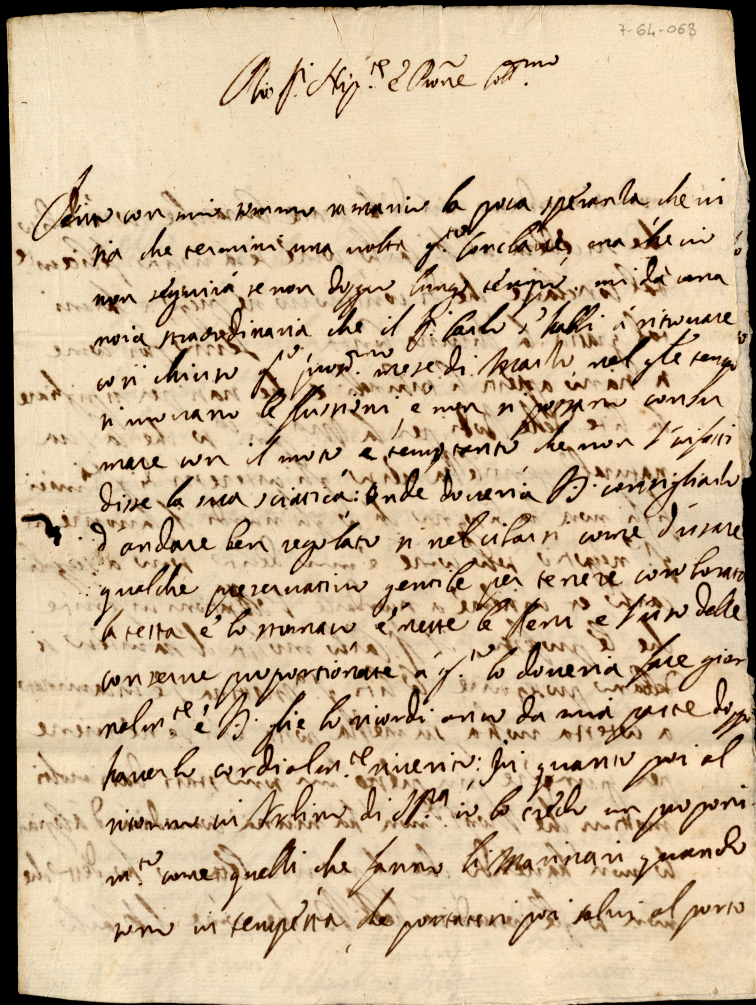 7-64-063
Sig.r Nip.te e Pron̄e Coll.mo
Sento con mio sommo ramarico la poca speranza che vi
sia che termini una volta q.to Conclave, ma che
non seguirà se non doppo lungo tempo, mi dà una
noia straordinaria che il S.r Carlo s'habbi à ritrovare
così chiuso q.to pros.mo mese di Marzo, nel q̄le tempo
si movano le flussioni, e non si possano consu
mare con il moto e temo tanto che non l'infasti
disse la sua sciatica: onde doveria V.S. consigliarlo
d'andare ben regolato sì nel cibarsi come d'usare
qualche preservativo gentile per tenere corroborata
la testa e lo stomaco e nette le reni e l'uso delle
conserve proportionate à q.to lo doveria fare gior
nalm.te e V.S. glie lo ricordi anco da mia parte doppo
haverlo cordialm.te riverito: In quanto poi al
ritorno in Urbino di N. io lo credo un proponi
m.to come quelli che fanno li Marinari quando
sono in tempesta, che portatisi poi salvi al porto